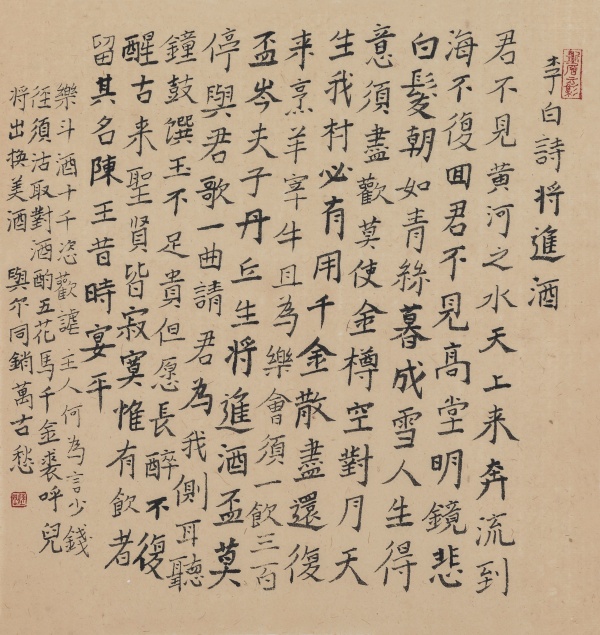 李白詩將進酒
君不見黄河之水天上来奔流到
海不復囬君不見高堂明鏡悲
白髮朝如青絲暮成雪人生得
意須盡歡莫使金樽空對月天
生我材必有用千金散盡還復
来烹羊宰牛且為樂會須一飲三百
盃岑夫子丹丘生將進酒盃莫
停與君歌一曲請君為我側耳聽
鐘鼓饌玉不足貴但愿長醉不復
醒古来聖賢皆寂寞惟有飲者
留其名陳王昔時宴平
樂斗酒十千恣歡謔主人何為言少錢
徑須沽取對酒酌五花馬千金裘呼兒
將出換美酒與尔同銷萬古愁